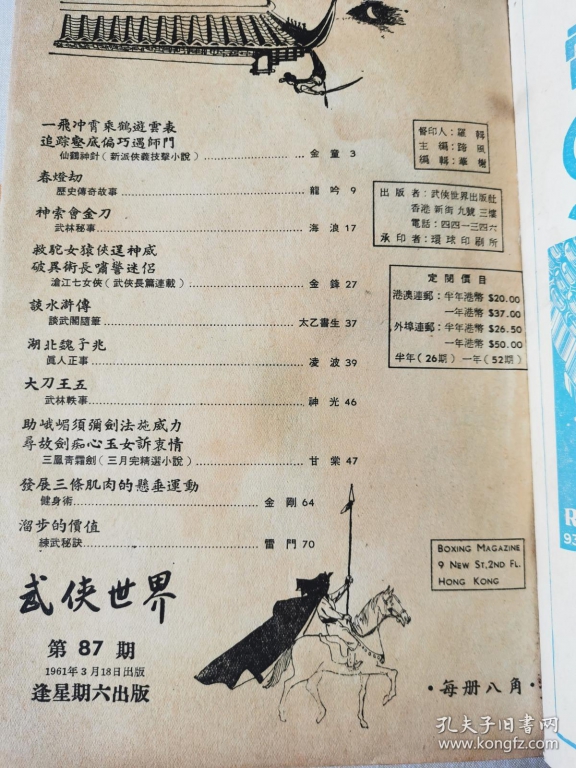 一飛冲霄乘鶴遊雲表
追踪壑底偏巧遇師門
仙鶴神針（新派俠義技擊小說）金童 3
春燈劫
歷史傳奇故事 龍吟 9
神索會金刀
武林秘事 海浪 17
救駝女猿俠逞神威
破異術長嘯警迷侶
滄江七女俠（武俠長篇連載）金鋒 27
談水滸傳
談武閣隨筆 太乙書生 37
湖北魏子兆
眞人正事 凌波 39
大刀王五
武林軼事 神光 46
助峨嵋須彌劍法施威力
尋故劍痴心玉女訴衷情
三鳳青霜劍（三月完精選小說）甘棠 47
發展三條肌肉的懸垂運動
健身術 金剛 64
溜步的價值
練武秘訣 雷門 70
武侠世界
第87期
1961年3月18日出版
逢星期六出版
督印人：羅輯
主編：路風
編輯：華樹
出版者：武俠世界出版社
香港新街九號三樓
電話：四四一三四六
承印者：環球印刷所
定閱價目
港澳連郵：半年港幣 $20.00
一年港幣 $37.00
外埠連郵：半年港幣 $26.50
一年港幣 $50.00
半年（26期）一年（52期）
BOXING MAGAZINE
9 NEW ST,2ND FL.
HONG KONG
·每册八角·
孔夫子旧书网
www.kongfz.com